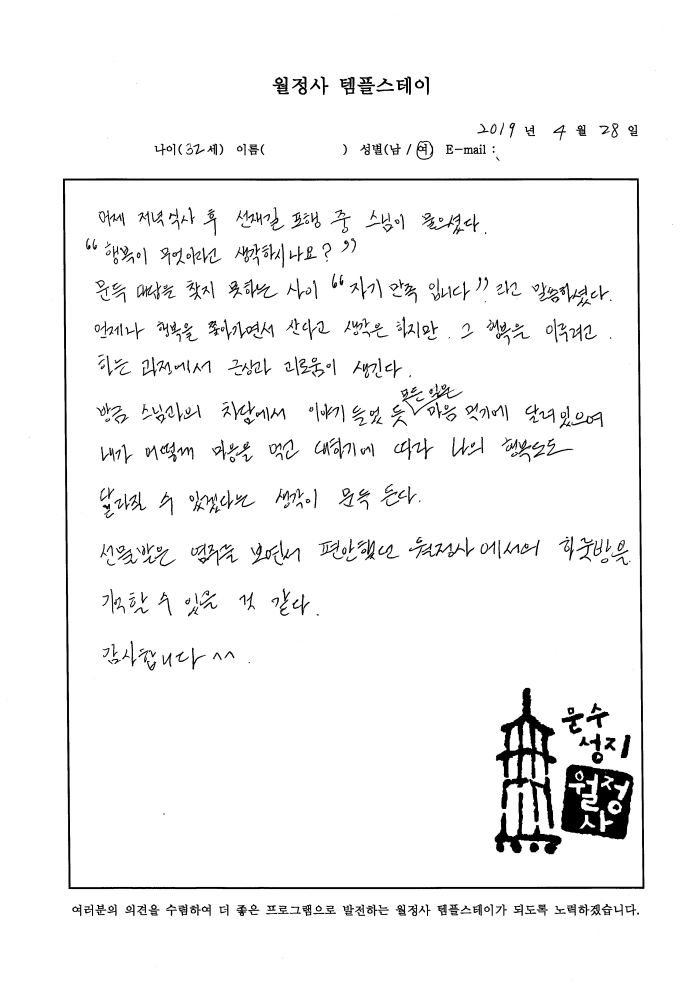 월정사 템플스테이
2019 년 4 월 28 일
나이(32세) 이름( ) 성별(남 / 여) E-mail :
어제 저녁식사 후 선재길 포행 중 스님이 물으셨다.
“행복이 무엇이라고 생각하시나요?”
문득 대답을 찾지 못하는 사이 “자기 만족 입니다” 라고 말씀하셨다.
언제나 행복을 쫓아가면서 산다고 생각은 하지만. 그 행복을 이루려고.
하는 과정에서 근심과 괴로움이 생긴다.
방금 스님과의 차담에서 이야기 들었 듯 모든 일은 마음 먹기에 달려있으며
내가 어떻게 마음을 먹고 대하기에 따라 나의 행복도도
달라질 수 있겠다는 생각이 문득 든다.
선물받은 염주를 보면서 편안했던 월정사에서의 하룻밤을
기억할 수 있을 것 같다.
감사합니다 ^^.
문수
성지
월정
사
여러분의 의견을 수렴하여 더 좋은 프로그램으로 발전하는 월정사 템플스테이가 되도록 노력하겠습니다.